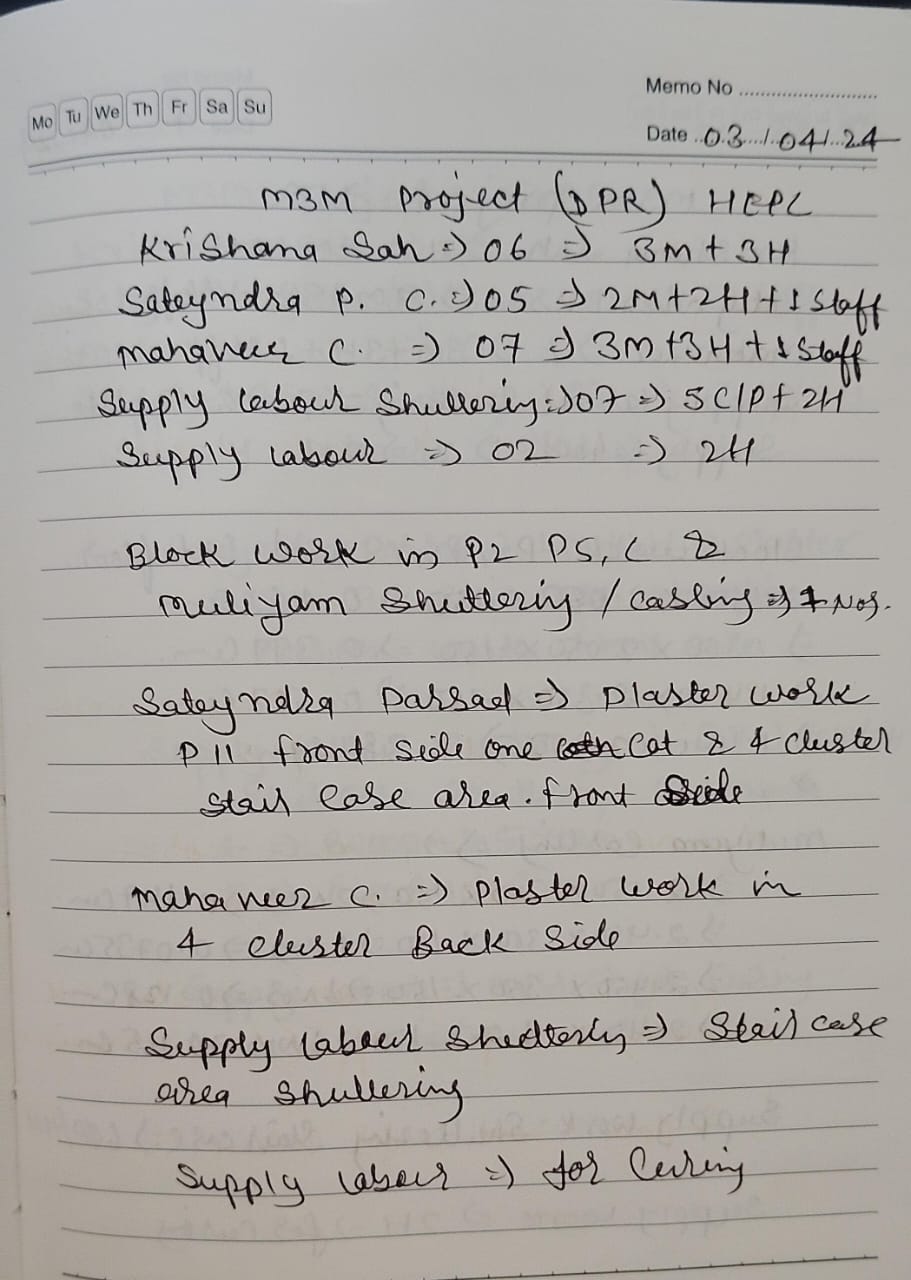 Mo Tu We Th Fr Sa Su
Memo No
Date 03/04/24
M3M Project (DPR) HEPL
Krishana Sah => 06 => 3M + 3H
Sateyndra P. C. => 05 => 2M+2H+1 Staff
Mahaveer C. => 07 => 3M+3H+1 Staff
Supply labour Shuttering => 07 => 5C/P+2H
Supply labour => 02 => 2H
Block work in P2 P5, C &
muliyam Shuttering / casting => Nos.
Sateyndra Parsad => Plaster work
P 11 front side one Cot & 4 cluster
Stair Case area. front Side
Mahaveer C. => Plaster work in
4 cluster Back Side
Supply labour Shuttering => Stair case
area Shuttering
Supply labour => for Curing